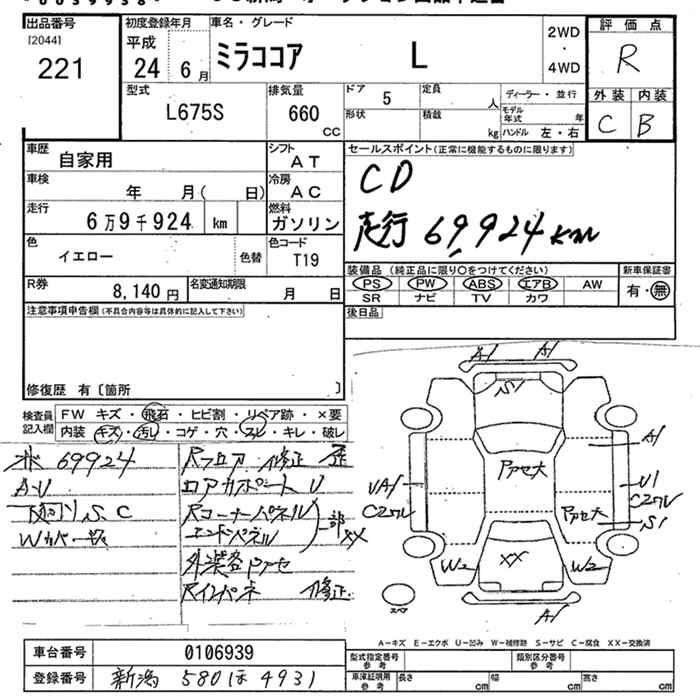 出品番号
[2044]
221
初度登録年月
平成
24 6月
車名・グレード
ミラココア L
2WD
・
4WD
評価点
R
外装 内装
C B
型式
L675S
排気量
660
CC
ドア 5
形状
定員 人
積載 kg
ディーラー・並行
モデル年式 年
ハンドル 左・右
車歴
自家用
シフト
AT
車検
年 月( 日)
冷房
AC
走行
6万9千924 km
燃料
ガソリン
色
イエロー
色替
色コード
T19
R券
8,140 円
名変通知期限
月 日
セールスポイント(正常に機能するものに限ります)
CD
走行 69,924km
装備品(純正品に限り○をつけてください)
新車保証書
PS PW ABS エアB AW
SR ナビ TV カワ
有・無
後日品
注意事項申告欄(不具合内容等は具体的に記入して下さい)
修復歴 有〔箇所 〕
検査員
記入欄
FW キズ・飛石・ヒビ割・リペア跡・×要
内装 キズ・汚レ・コゲ・穴・スレ・キレ・破レ
69924
A・U
下回りS、C
Wカバー
Rフロア 修正 歴
ロアカバーサポートU
Rコーナーパネル
エンドパネル
一部XX
Rインパネ 修正
A1 A1
S1
A1
アクセ大
UA1
U1
Cエクレ
Cエクレ
アクセ大
S1
W2 XX W2
A1
スペア
A－キズ E－エクボ U－凹み W－補修跡 S－サビ C－腐食 XX－交換済
車台番号
0106939
登録番号
新潟 580 ほ 4931
型式指定番号
参考
類別区分番号
参考
車庫証明用
参考
長さ cm
幅 cm
高さ cm